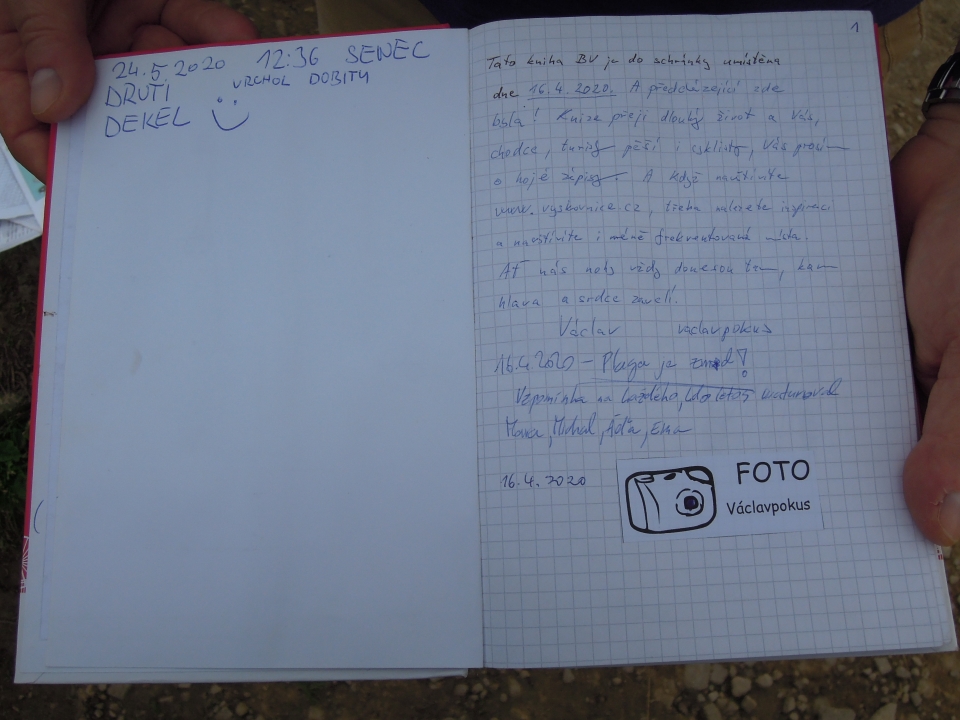 24.5.2020 12:36 SENEC
VRCHOL DOBITÝ
DRUTI
DEKEL
1
Tato kniha BV je do schránky umístěna
dne 16.4.2020. A předcházející zde
byla! Knize přeji dlouhý život a Vás,
chodce, turisty pěší i cyklisty, Vás prosím
o hojé zápisy. A když navštívíte
www.vyskovnice.cz, třeba naleznete inspiraci
a navštívíte i méně frekventovaná místa.
Ať nás nohy vždy donesou tam, kam
hlava a srdce zavelí.
Václav vaclavpokus
16.4.2020 - je
Vzpomínka na každého, kdo letos
Michal, Ema
16.4.2020
FOTO
Václavpokus